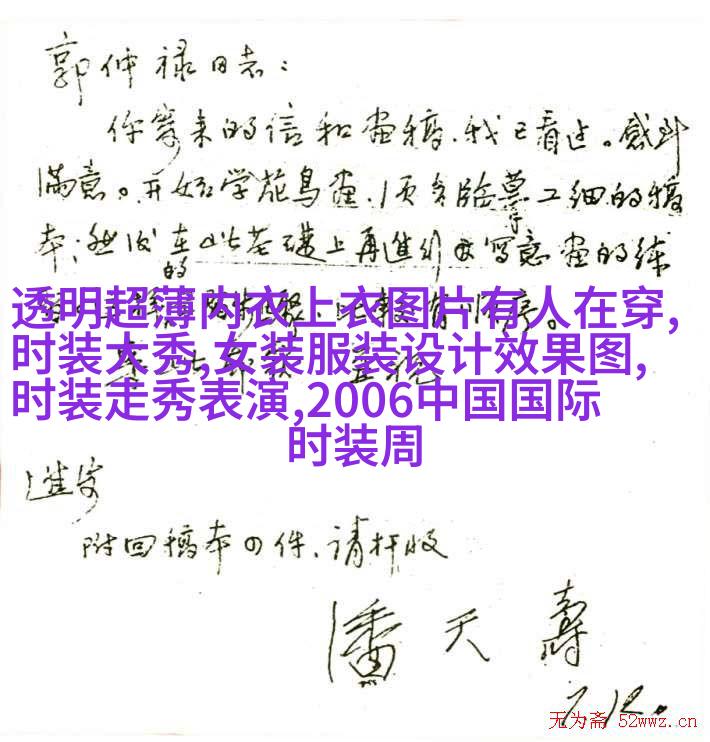 郭仲禄同志:
你寄来的信和画稿,我已看过。感到
满意。开始学花鸟画,须多临摹工细的稿
本;然后在此基础上再进行写意画的练
的
透明超薄内衣上衣图片有人在穿,
时装大秀,女装服装设计效果图,
时装走秀表演,2006中国国际
时装周
进安
附回稿本 件、请 收
潘天寿
7.12.
无为斋 52wwz.cn